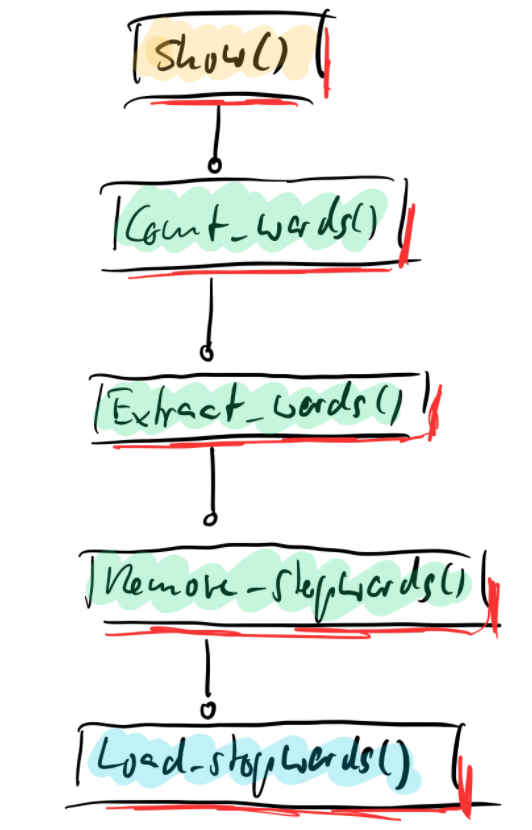 Show()
Count_words()
Extract_words()
Remove_stopwords()
Load_stopwords()